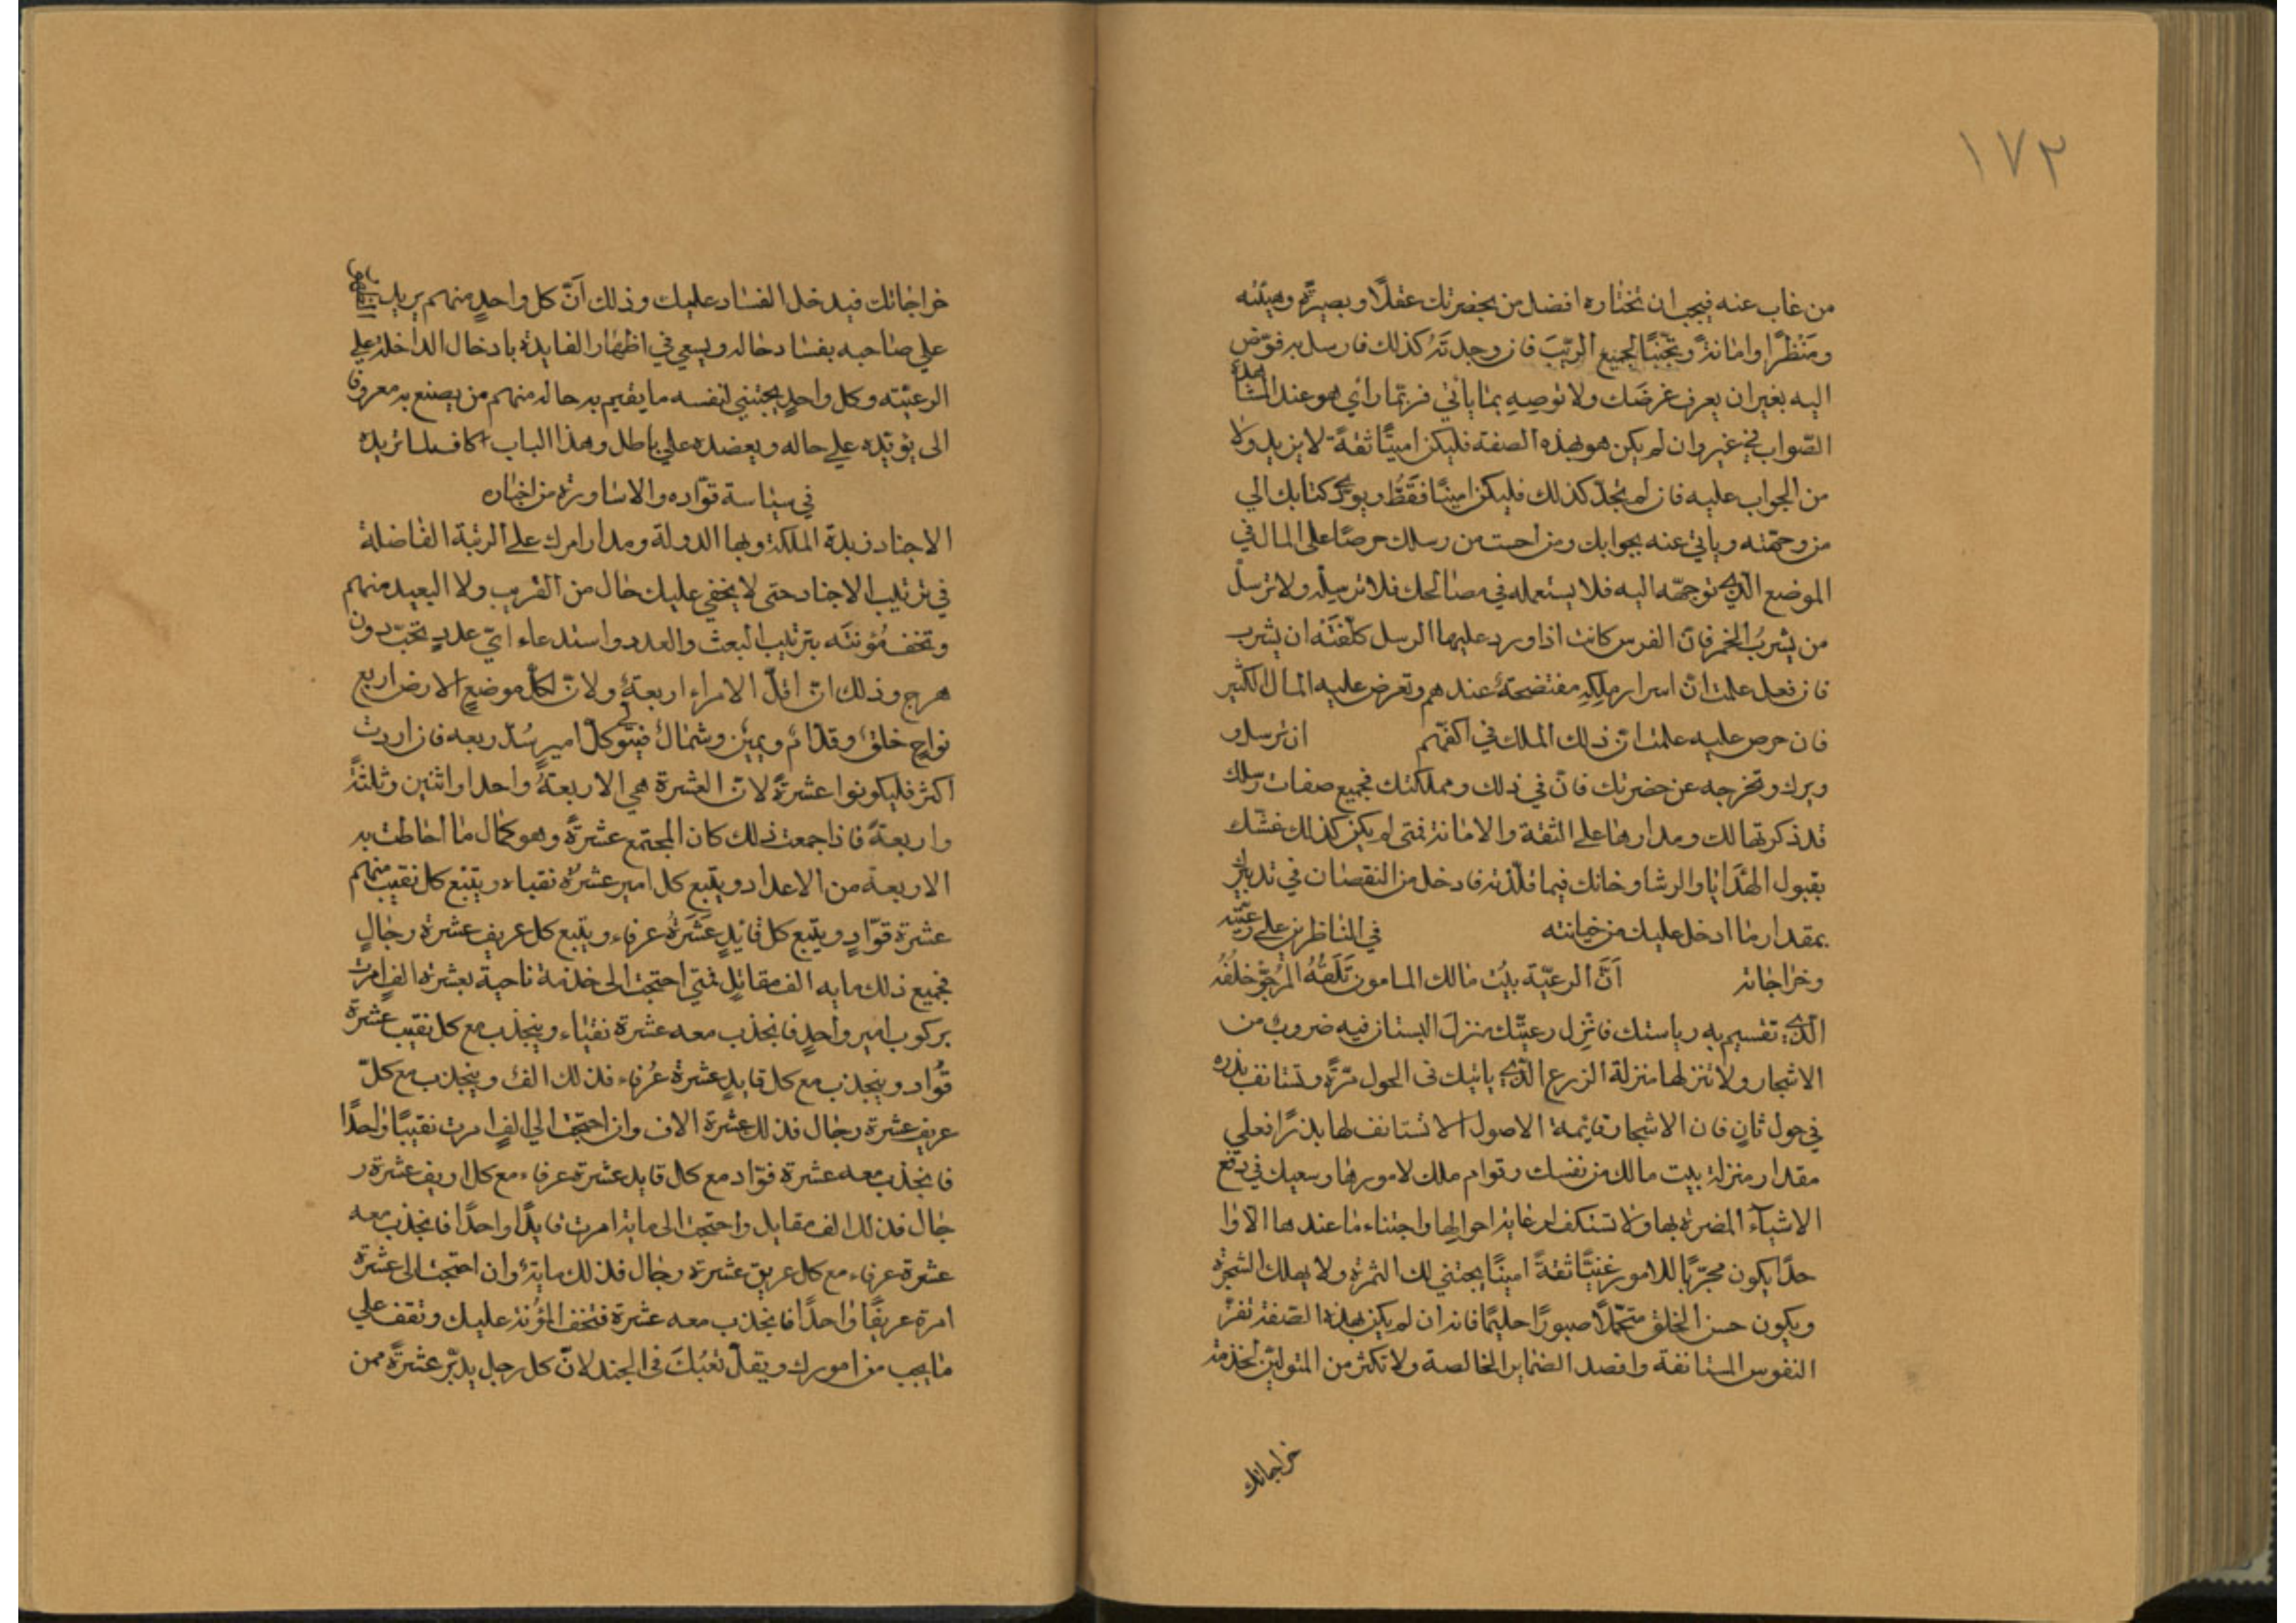 ١٧٢
من غاب عنه فيجب ان تختاره افضل من بحضرتك عقلًا وبصيرًة وهيئته
ومَنْظرًا وامانةً وتجنّبًا لجميع الرِّيَبَ فان وجدتَهُ كذلك فارسل به فوّض
اليه بغير ان يعرف غرضَك ولا توصِهِ بما يأتي فربّما رأي هو عند المشاهدة
الصّواب في غير وان لم يكن هو بهذه الصفة فليكن امينًا ثقةً لا يزيد ولا
من الجواب عليه فان لم تجدّ كذلك فليكن امينًا فقَطُ ويودّي كتابك الي
من وجّهته وياتي عنه بجوابك ومن احست من رسلك حرصًا على المال في
الموضع الذي توجّهه اليه فلا يستعمله في مصالحك فلا ترسله ولا ترسل
من يشربُ الخمر فانّ الفرس كانت اذا ورد عليها الرسل كلّفتَه ان يشرب
فان فعل علمت انّ اسرار ملِكِهِ مفتضحةٌ عندهم وتعرض عليه المال الكثير
فان حرص عليه علمت انّ ذلك الملك في اكفّهم ان ترسل و
وبرك وتخرجه عن حضرتك فانّ في ذلك ومملكتك فجميع صفات رسلك
قد ذكرتها لك ومدارها على الثقة والامانة فمتى لم يكن كذلك غشّك
بقبول الهَدَايا والرشا وخانك فيما قلّدته فادخل من النقصان في تدبيرك
بمقدار ما ادخل عليك من خيانته في الناظرين على رعيّته
وخراجاته اَنَّ الرعيّة بيْت مالك المامون تَلَفهُ المرجوّ خلْفُه
الذي تقسيم به رياستك فانْزِل رعيّتك منزلَ البستان فيه ضروب من
الاشجار ولا تنزلها منزلة الزرع الذي ياتيك فى الحول مرّةً وتستانف بذره
في حول ثانٍ فان الاشجار قايمة الاصول لا تستانف لها بذرًا فعلي
مقدار منزلة بيت مالك من نفسك وقوام ملك لامورها وسعيك في دفع
الاشيآء المضرة بها ولا تستنكف لرعاية احوالها واجتناء ما عندها الا وا
حدًا يكون مجرّبًا للامور غنيًّا ثقةً امينًا يجتني لك الثمرة ولا يهلك الشجرة
ويكون حسن الخلق متحمّلًا صبورًا حليمًا فانه ان لم يكن بهذه الصّفة نفّر
النفوس المستانفة وافصد الضماير الخالصة ولا تكثر من المتولين لخدمة
خراجاتك
خراجاتك فيدخل الفساد عليك وذلك اَنّ كل واحدٍ منهم يريد
علي صاحبه بفساد حاله ويسعي في اظهار الفايدة بادخال الداخلة علي
الرعيّته وكل واحدٍ يجتنبي لنفسه ما يقيم به حاله منهم من يصنع به معروفا
الى يؤيّده علي حاله ويعضده علي باطل وهذا الباب
في سياسة قوّاده والاساورة من اجناده
الاجناد زبدة المملكة وبها الدولة ومدار امرك على الرتبة الفاضلة
في ترتيب الاجناد حتى لا يخفي عليك حال من القريب ولا البعيد منهم
وتخف مُؤنتَه بترتيب البعث والعدد واستدعاء ايّ عددٍ تحبّ دون
هرج وذلك انّ اقلّ الامراء اربعةٌ ولانّ لكل موضعٍ الارض اربع
نواحٍ خلفٌ وقدّامٌ ويمينٌ وشمالٌ فيتوكلّ كلّ اميرٍ سُدّ ربعه فان اردت
اكثر فليكونوا عشرةً لانّ العشرة هي الاربعةُ واحدا واثنين وثلثةً
واربعةً فاذا جمعت ذلك كان المجتمع عشرةً وهو كمال ما احاطت به
الاربعة من الاعداد ويتّبع كل امير عشرةُ نقباء ويتبع كل نقيب منهم
عشرة قوّادٍ ويتّبع كل قايدٍ عشَرَةُ عرفاء ويتبع كل عريف عشرة رجالٍ
فجميع ذلك مايه الف مقاتلٍ فمتي احتجت الى خدمة ناحية بعشرة الفٍ امرت
بركوب اميرٍ واحدٍ فانجذب معه عشرة نقباء وينجذب مع كل نقيب عشرة
قوّاد وينجذب مع كل قايدٍ عشرة عُرفاء فذلك الف وينجذب مع كلّ
عريف عشرة رجال فذلك عشرة الاف وان احتجت الي الفٍ امرت نقيبًا واحدًا
فانجذب معه عشرة قوّاد مع كل قايد عشرة عرفاء مع كل اريف عشرة ر
جال فذلك الف مقايل واحتجت الى ماية امرت قايدًا واحدًا فانجذب معه
عشرة عرفاء مع كل عريق عشرة رجال فذلك مايةٌ وان احتجت الى عشرة
امرة عريفًا واحدًا فانجذب معه عشرة فتخف المؤنة عليك وتقف علي
ما يجب من امورك ويقلّ تعبُكَ فى الجند لانّ كل رجل يدبّر عشرةً ممن